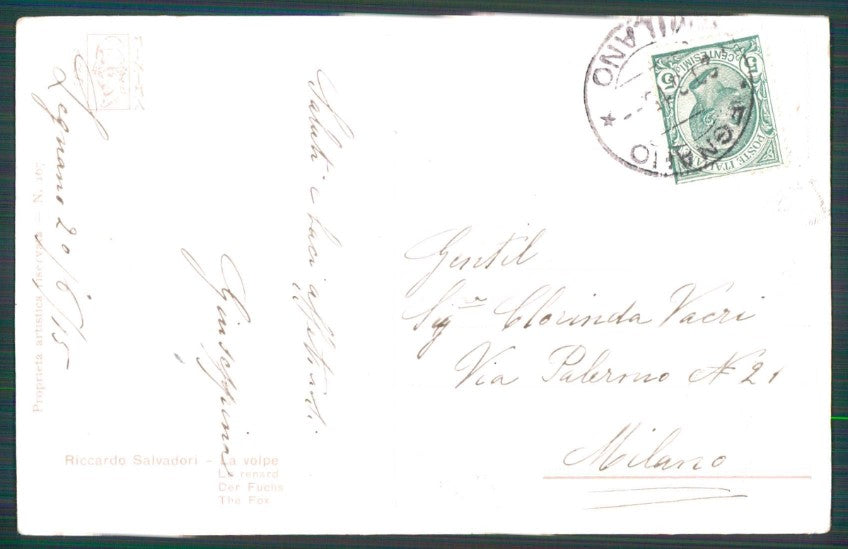 Legnano 20/6/15
Proprietà artistica riservata — N. 167
Saluti e baci affettuosi
Giuseppina
Riccardo Salvadori – La volpe
Le renard
Der Fuchs
The Fox
MILANO
CENTESIMI 5
5
POSTE ITAL
Gentil
Sigra Clorinda Vacri
Via Palermo N 21
Milano